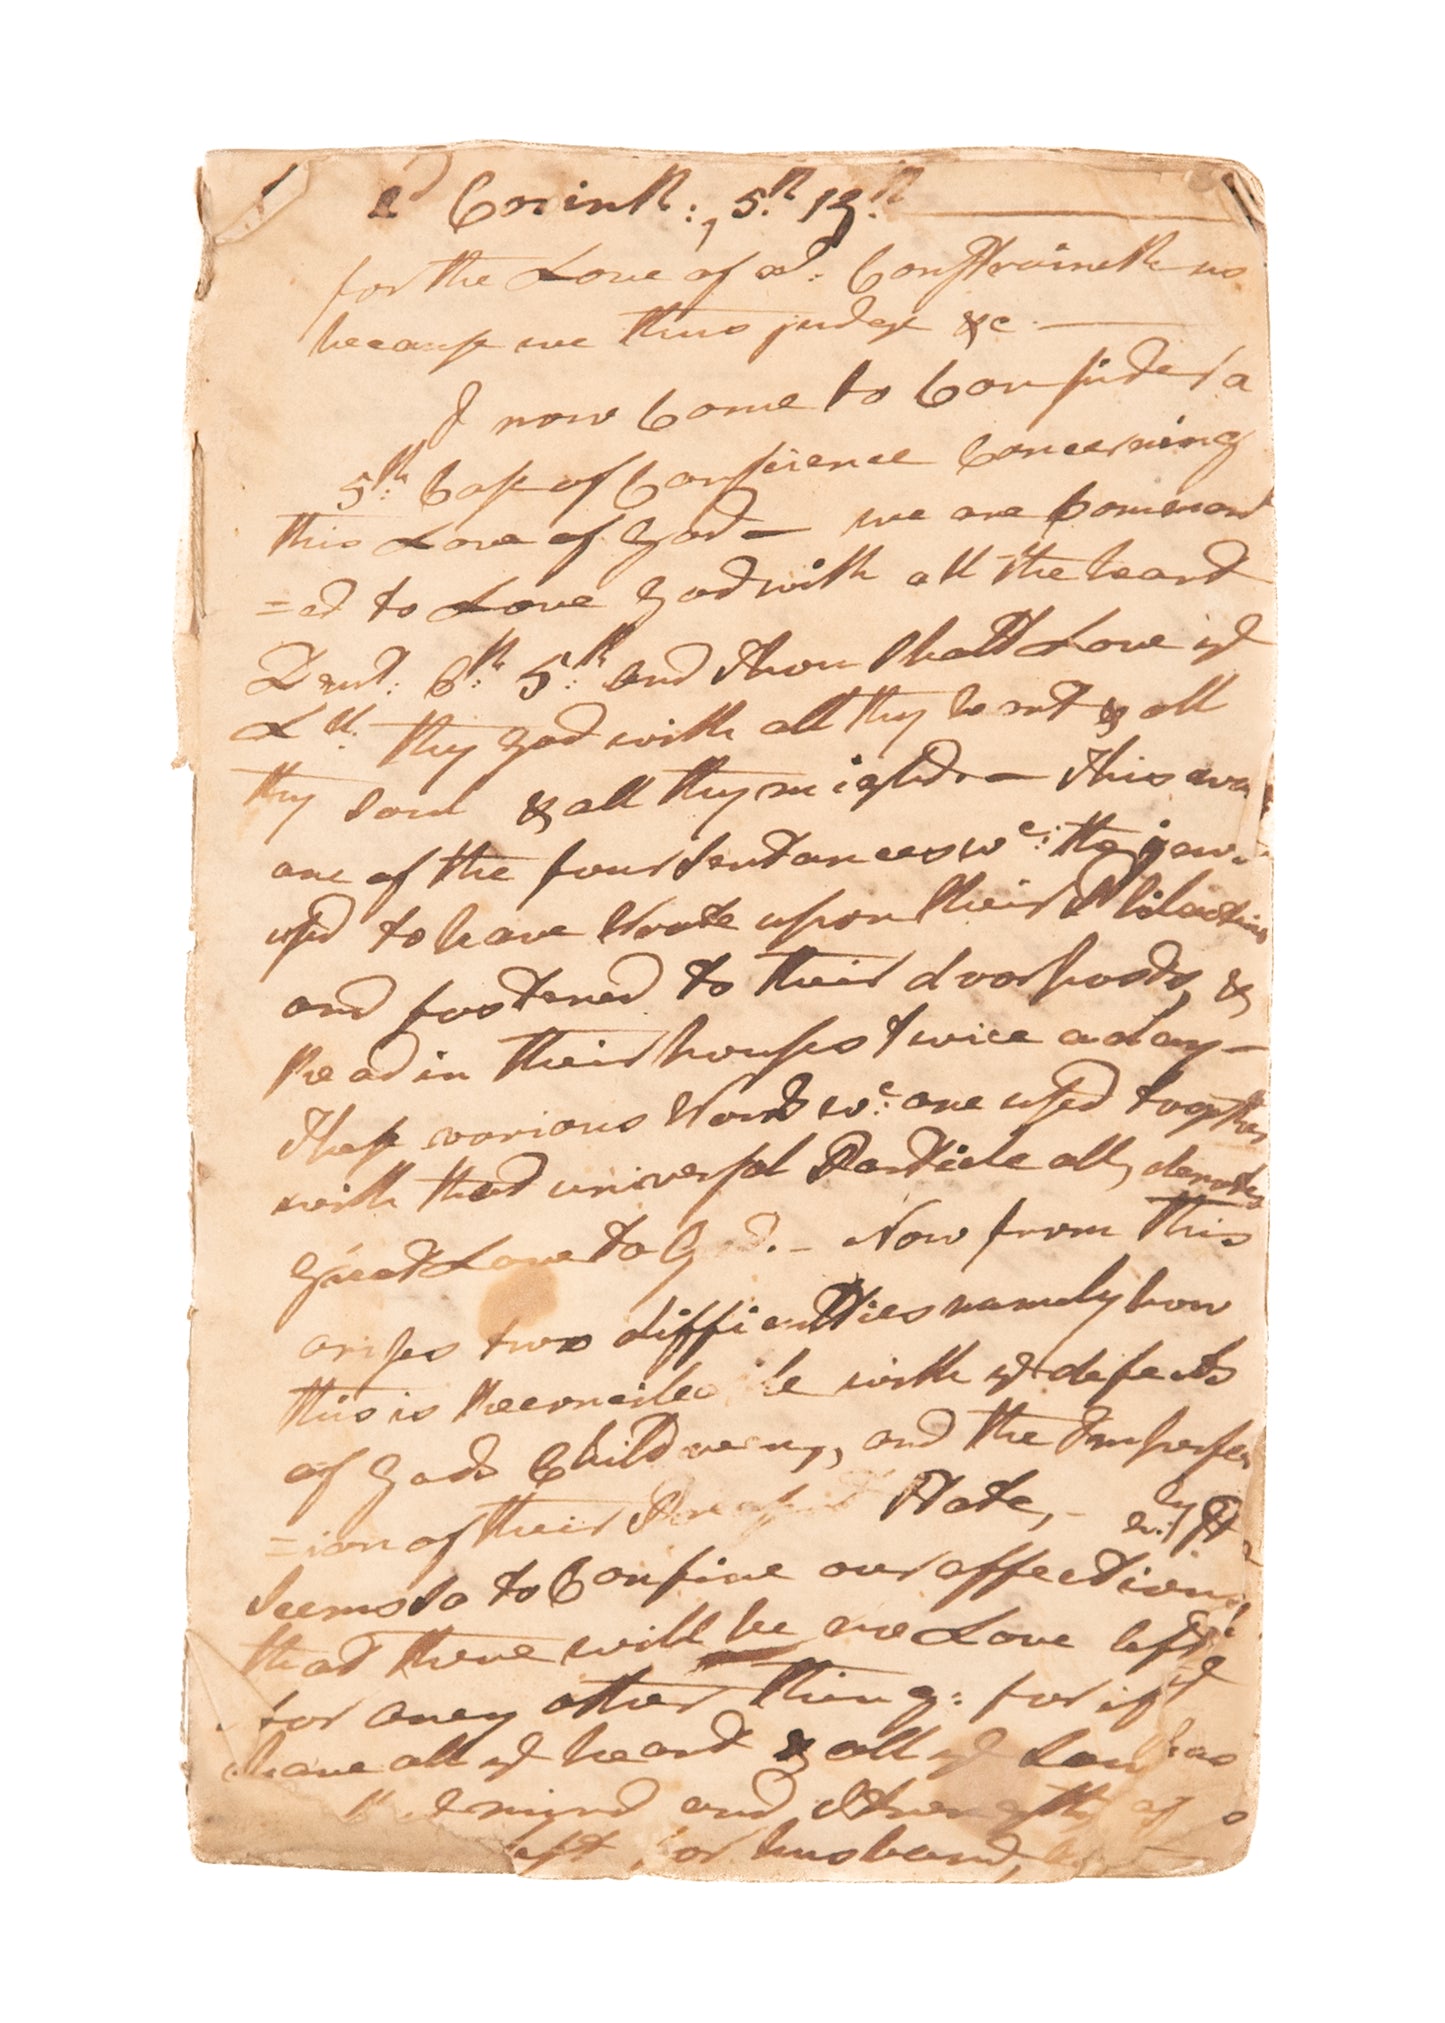 2d Corinth:, 5.th 13.th
for the Love of xt: Constraineth us
because we thus judge &c.
I now Come to Consider a
5th: Case of Conscience Concerning
this Love of God — we are Commend
=ed to Love God with all the heart
Deut: 6th: 5th: and thou shalt Love ye
Ld: thy God with all thy heart & all
thy soul & all thy might. — This was
one of the four sentances wc: the jews
used to have Wrote upon their Philacties
and fastened to their doorposts, &
Read in their houses twice a day —
These various Words wc: are used together
with that universal Particle all, denotes
Great Love to G d. — Now from this
arises two difficulties namely how
this is Reconcileable with ye defects
of Gods Children, and the Imperfec
=ion of their Present State, -
seems so to Confine our affections
that there will be no Love left
for aney other thing: for if ye
have all ye heart & all ye has
mind and Strength of
eft for husband,